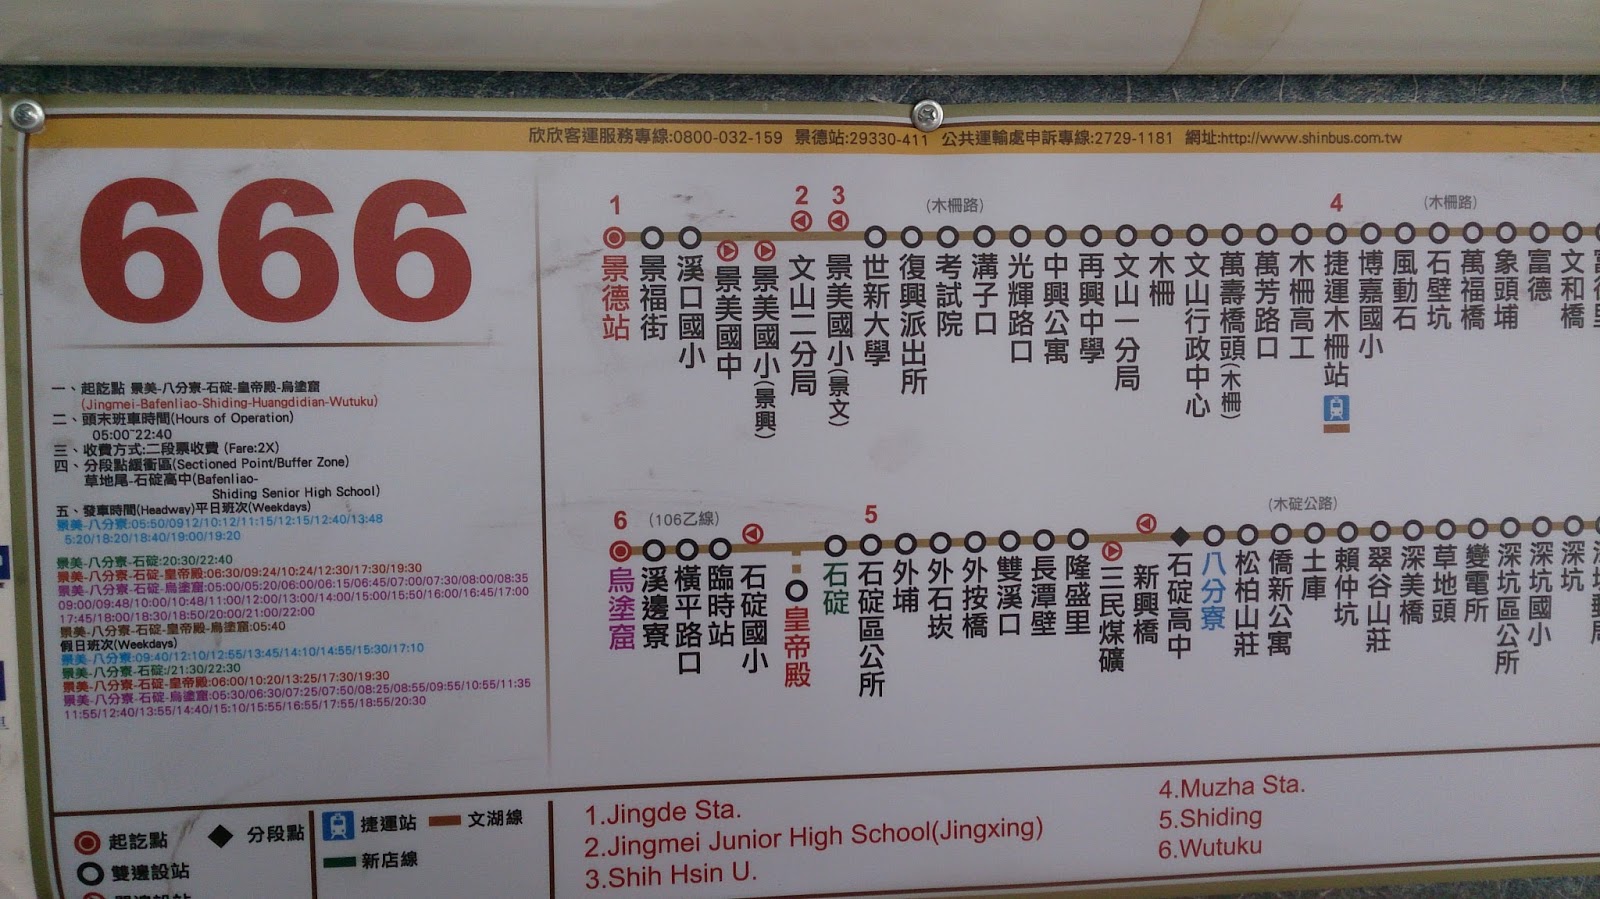 欣欣客運服務專線:0800-032-159 景德站:29330-411 公共運輸處申訴專線:2729-1181 網址:http://www.shinbus.com.tw
666
一、起訖點 景美-八分寮-石碇-皇帝殿-烏塗窟
(Jingmei-Bafenliao-Shiding-Huangdidian-Wutuku)
二、頭末班車時間(Hours of Operation)
05:00~22:40
三、收費方式:二段票收費 (Fare:2X)
四、分段點緩衝區(Sectioned Point/Buffer Zone)
草地尾-石碇高中(Bafenliao-
Shiding Senior High School)
五、發車時間(Headway)平日班次(Weekdays)
景美-八分寮:05:50/0912/10:12/11:15/12:15/12:40/13:48
5:20/18:20/18:40/19:00/19:20
景美-八分寮-石碇:20:30/22:40
景美-八分寮-石碇-皇帝殿:06:30/09:24/10:24/12:30/17:30/19:30
景美-八分寮-石碇-烏塗窟:05:00/05:20/06:00/06:15/06:45/07:00/07:30/08:00/08:35
09:00/09:48/10:00/10:48/11:00/12:00/13:00/14:00/15:00/15:50/16:00/16:45/17:00
17:45/18:00/18:30/18:50/20:00/21:00/22:00
景美-八分寮-石碇-皇帝殿-烏塗窟:05:40
假日班次(Weekdays)
景美-八分寮:09:40/12:10/12:55/13:45/14:10/14:55/15:30/17:10
景美-八分寮-石碇:/21:30/22:30
景美-八分寮-石碇-皇帝殿:06:00/10:20/13:25/17:30/19:30
景美-八分寮-石碇-烏塗窟:05:30/06:30/07:25/07:50/08:25/08:55/09:55/10:55/11:35
11:55/12:40/13:55/14:40/15:10/15:55/16:55/17:55/18:55/20:30
1
2
3
(木柵路)
4
(木柵路)
景德站
景福街
溪口國小
景美國中
景美國小(景興)
文山二分局
景美國小(景文)
世新大學
復興派出所
考試院
溝子口
光輝路口
中興公寓
再興中學
文山一分局
木柵
文山行政中心
萬壽橋頭(木柵)
萬芳路口
木柵高工
捷運木柵站
博嘉國小
風動石
石壁坑
萬福橋
象頭埔
富德
文和橋
6
(106乙線)
5
(木碇公路)
烏塗窟
溪邊寮
橫平路口
臨時站
石碇國小
皇帝殿
石碇
石碇區公所
外埔
外石崁
外按橋
雙溪口
長潭壁
隆盛里
三民煤礦
新興橋
石碇高中
八分寮
松柏山莊
僑新公寓
土庫
賴仲坑
翠谷山莊
深美橋
草地頭
變電所
深坑區公所
深坑國小
深坑
起訖點
分段點
雙邊設站
捷運站
文湖線
新店線
1.Jingde Sta.
2.Jingmei Junior High School(Jingxing)
3.Shih Hsin U.
4.Muzha Sta.
5.Shiding
6.Wutuku